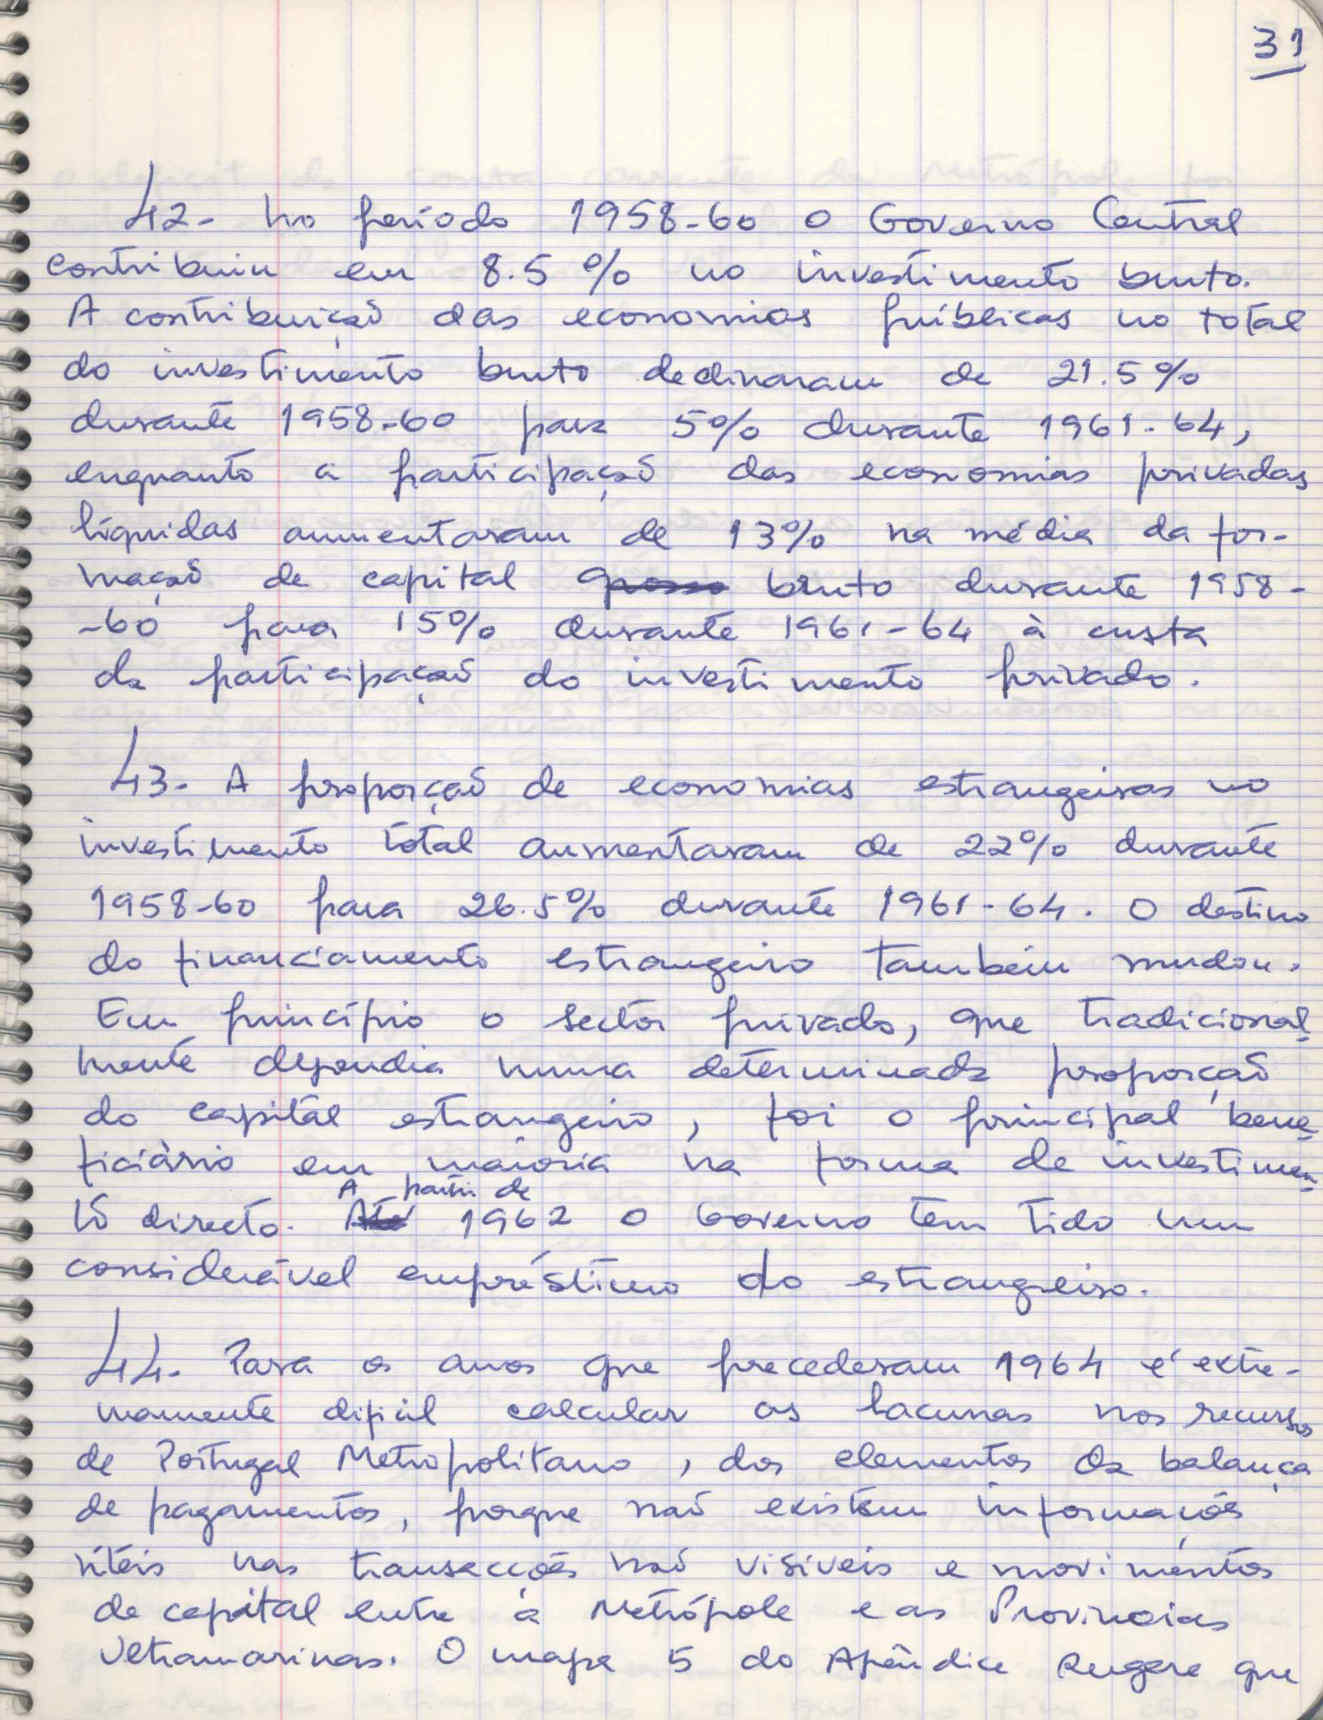 31
42- No período 1958-60 o Governo Central
contribuiu em 8.5% no investimento bruto.
A contribuição das economias públicas no total
do investimento bruto declinaram de 21.5%
durante 1958-60 para 5% durante 1961-64,
enquanto a participação das economias privadas
líquidas aumentaram de 13% na média da for-
mação de capital bruto durante 1958-
-60 para 15% durante 1961-64 à custa
da participação do investimento privado.
43- A proporção de economias estrangeiras no
investimento total aumentaram de 22% durante
1958-60 para 26.5% durante 1961-64. O destino
do financiamento estrangeiro também mudou.
Em princípio o sector privado, que tradicional
mente dependia numa determinada proporção
do capital estrangeiro, foi o principal bene
ficiário em maioria na forma de investimen
to directo. A partir de 1962 o Governo tem tido um
considerável empréstimo do estrangeiro.
44- Para os anos que precederam 1964 é extre-
mamente difícil calcular as lacunas nos recursos
de Portugal Metropolitano, dos elementos da balança
de pagamentos, porque não existem informações
úteis nas transacções não visíveis e movimentos
de capital entre a Metrópole e as Províncias
Ultramarinas. O mapa 5 do Apêndice sugere que